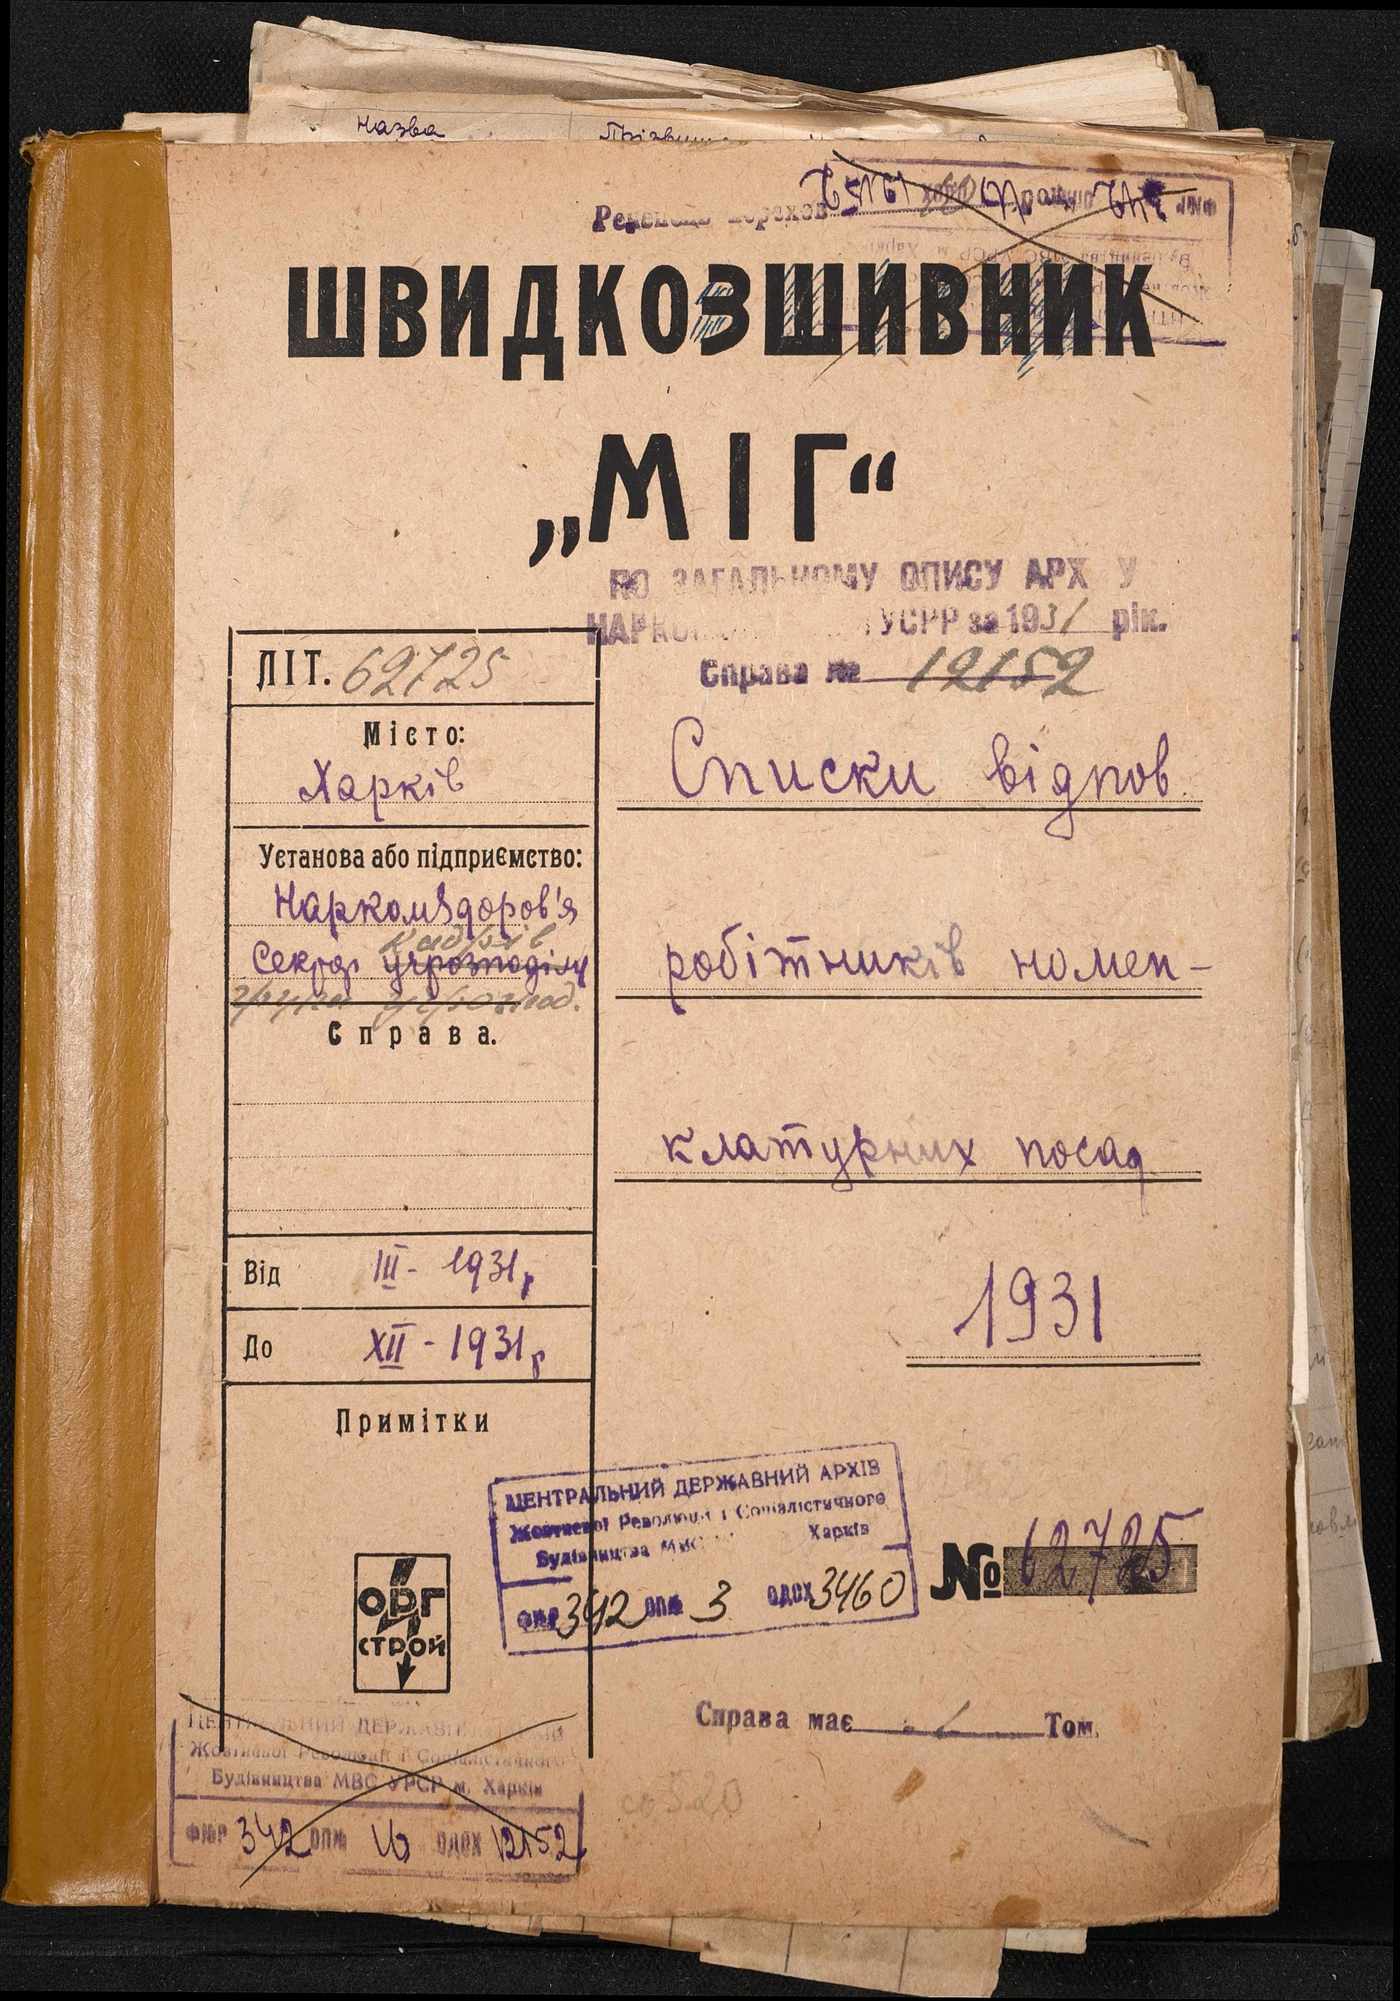 Назва Прізвище
ШВИДКОЗШИВНИК
„МІГ“
ПО ЗАГАЛЬНОМУ ОПИСУ АРХ У
УСРР за 1931 рік.
Справа № 12152
ЛІТ. 62725
Місто:
Харків
Установа або підприємство:
Наркомздоров'я
кадрів
Секція
Справа.
Від III - 1931 р
До XII - 1931 р
Примітки
Списки відпов.
робітників номен-
клатурних посад
1931
ЦЕНТРАЛЬНИЙ ДЕРЖАВНИЙ АРХІВ
Жовтневої Революції і Соціалістичного
Будівництва МВС Харків
ФНР 342 ОП№ 3 ОДОХ 3460
№ 62725
ОРГ
СТРОЙ
Справа має 1 Том.
ЦЕНТРАЛЬНИЙ ДЕРЖАВНИЙ АРХІВ
Жовтневої Революції і Соціалістичного
Будівництва МВС УРСР м. Харків
ФНР 342 ОП№ 16 ОДОХ 12152